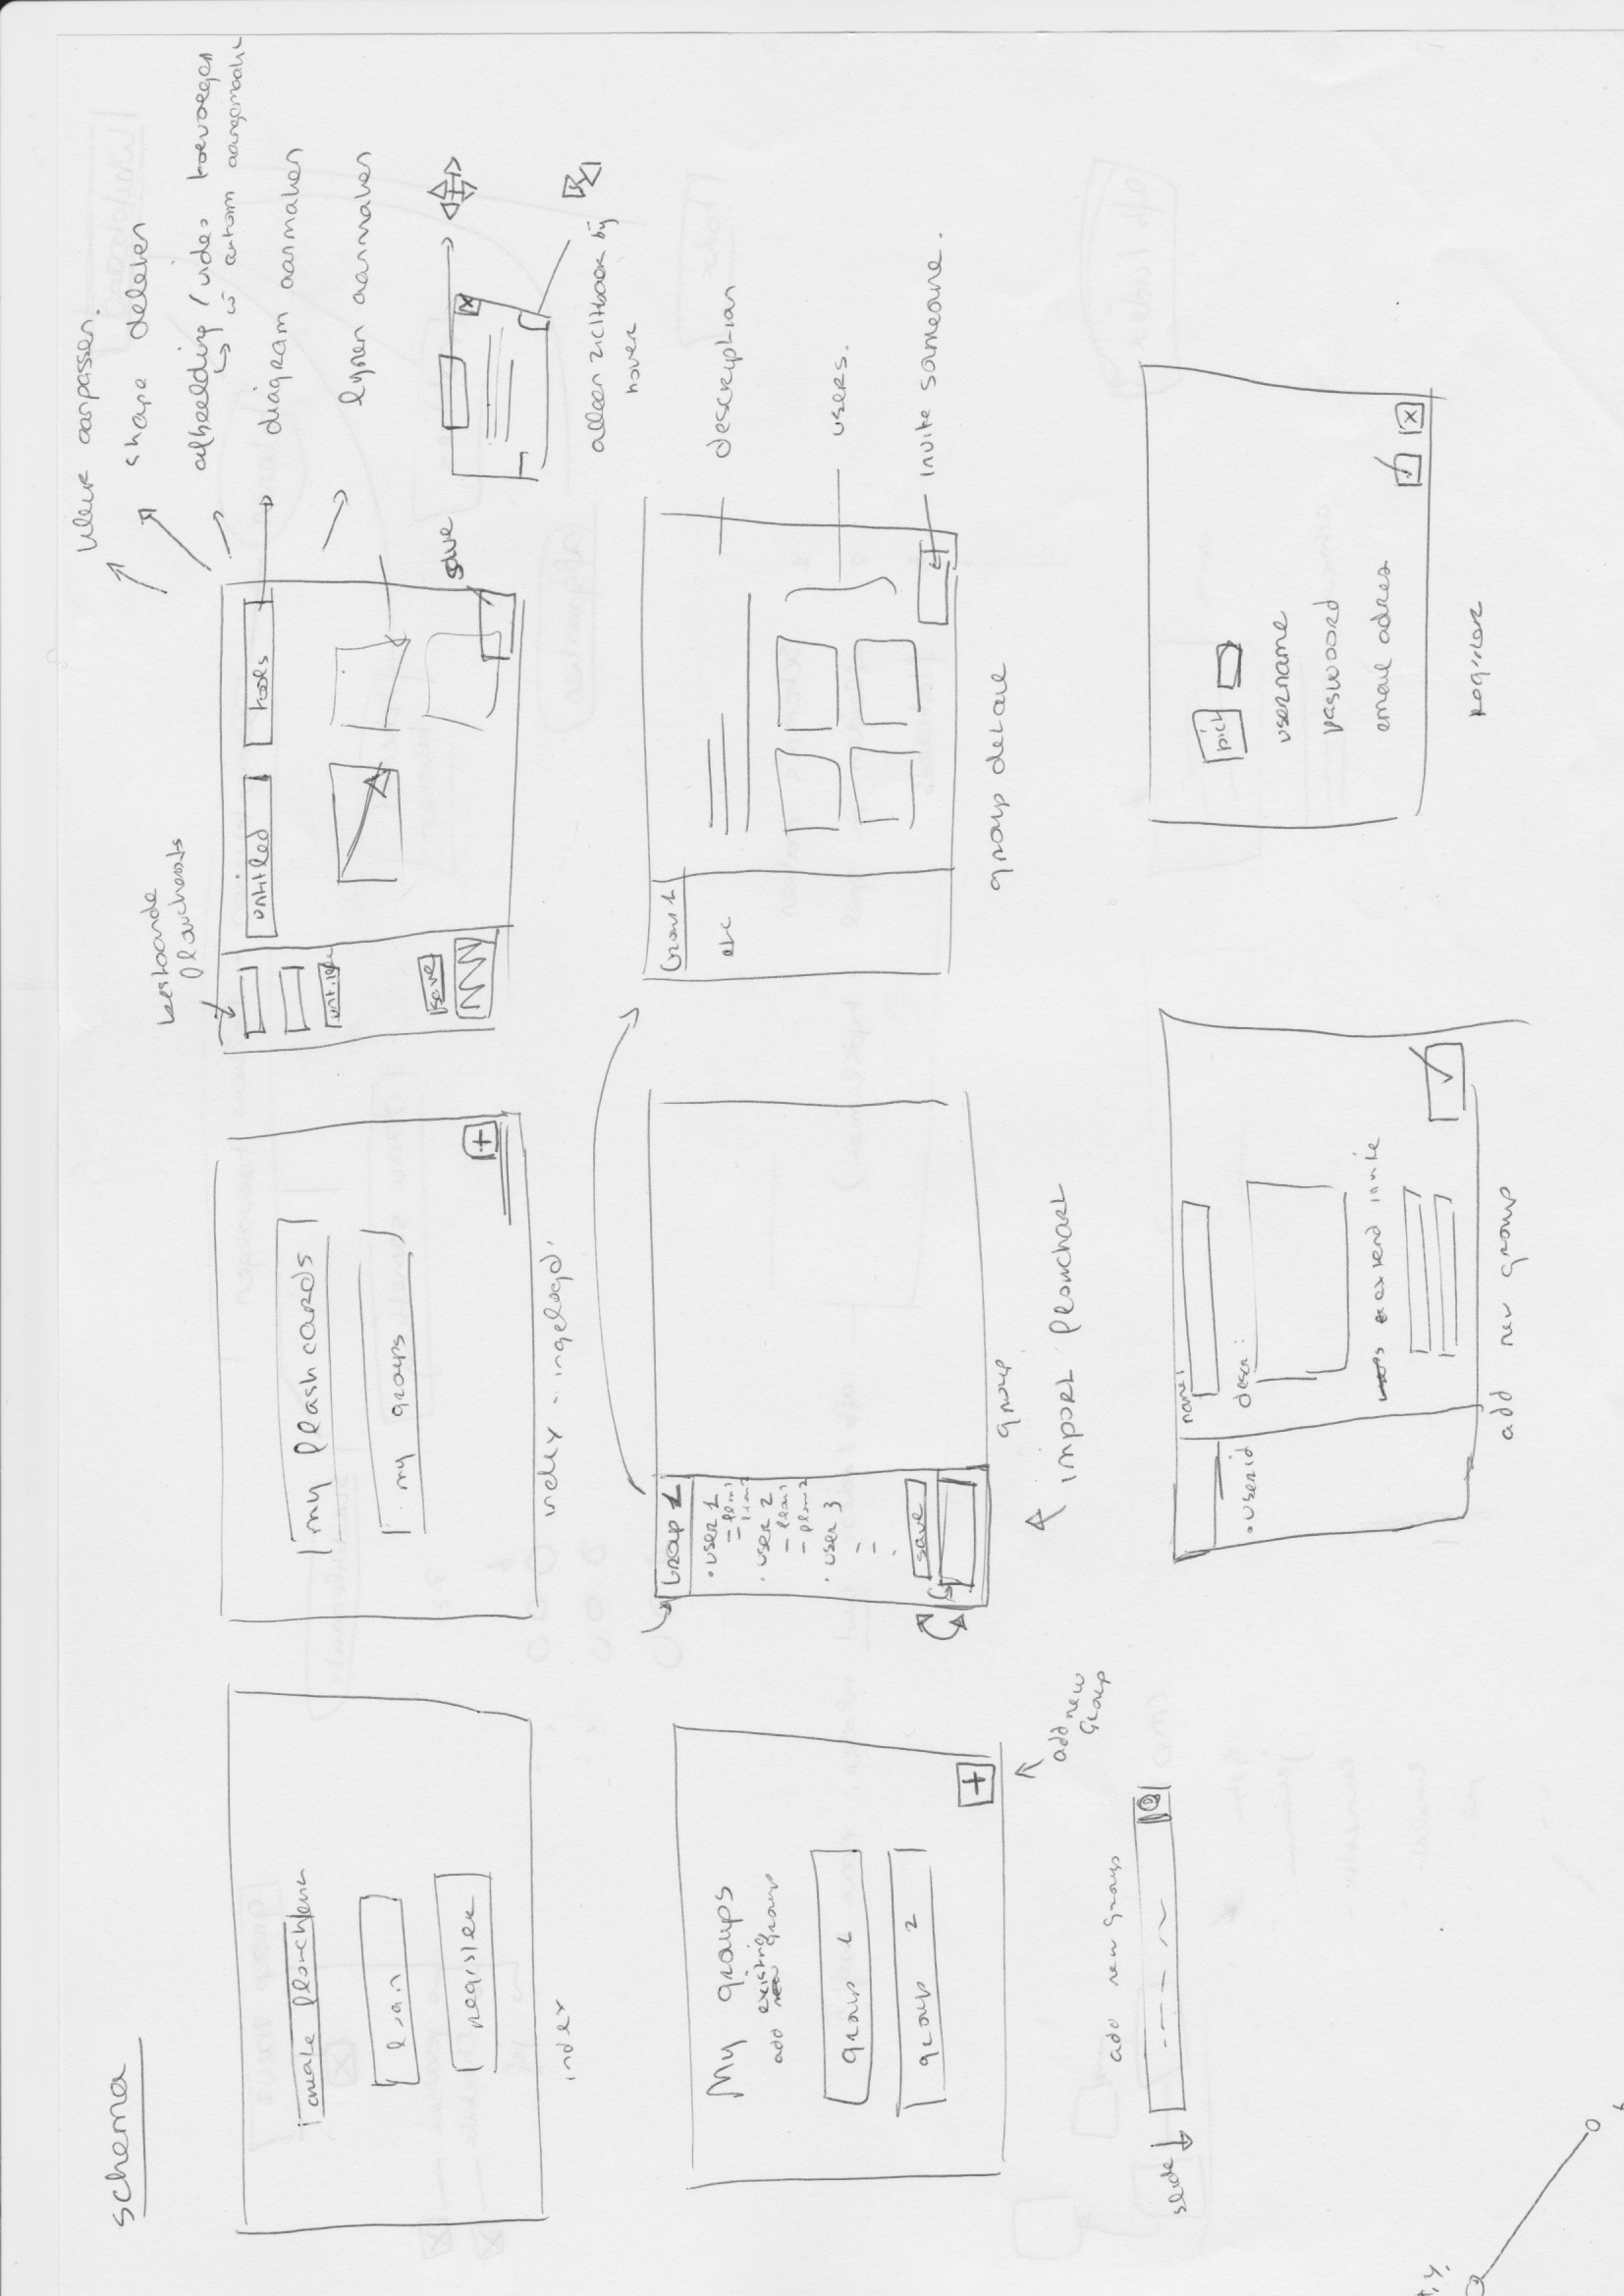 schema
create flowchart
login
register
index
my flash cards
my groups
+
index - ingelogd
bestaande
flowcharts
untitled
tools
untitled
save
save
kleur aanpassen.
shape deleten
afbeelding / video toevoegen
autom aangemaakt
diagram aanmaken
lijnen aanmaken
x
alleen zichtbaar bij
hover
My groups
existing
add new group
group 1
group 2
+
add new
group
add new group
slide
Group 1
• user 1
– flow1
– flow2
• user 2
– flow1
– flow2
• user 3
–
–
save
group
import flowchart
Group 1
etc
description
users.
invite someone.
group detail
• userid
name:
descr:
extend invite
add new group
pict
username
paswoord
email adres
x
register